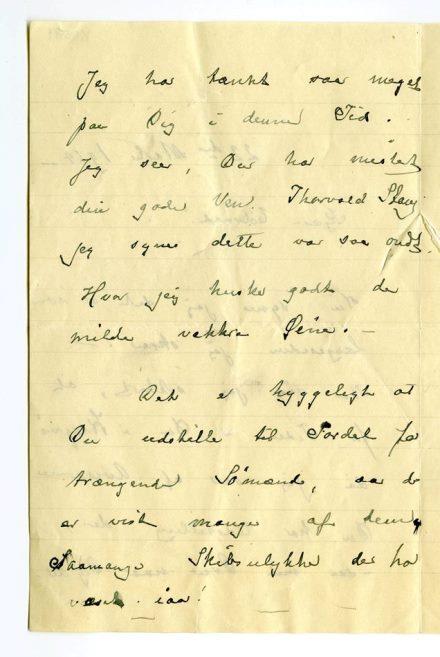 Jeg har tænkt saa meget
paa Dig i denne Tid.
Jeg seer, Du har mistet
din gode Ven Thorvald
jeg synes dette var saa ondt.
Hvor jeg husker godt de
milde vakkre Øine. —
Det er hyggeligt at
Du udstiller til Fordel for
trængende Sømænd, aa de
er vist mange af dem,
Saamange Skibsulykker der har
været iaar!